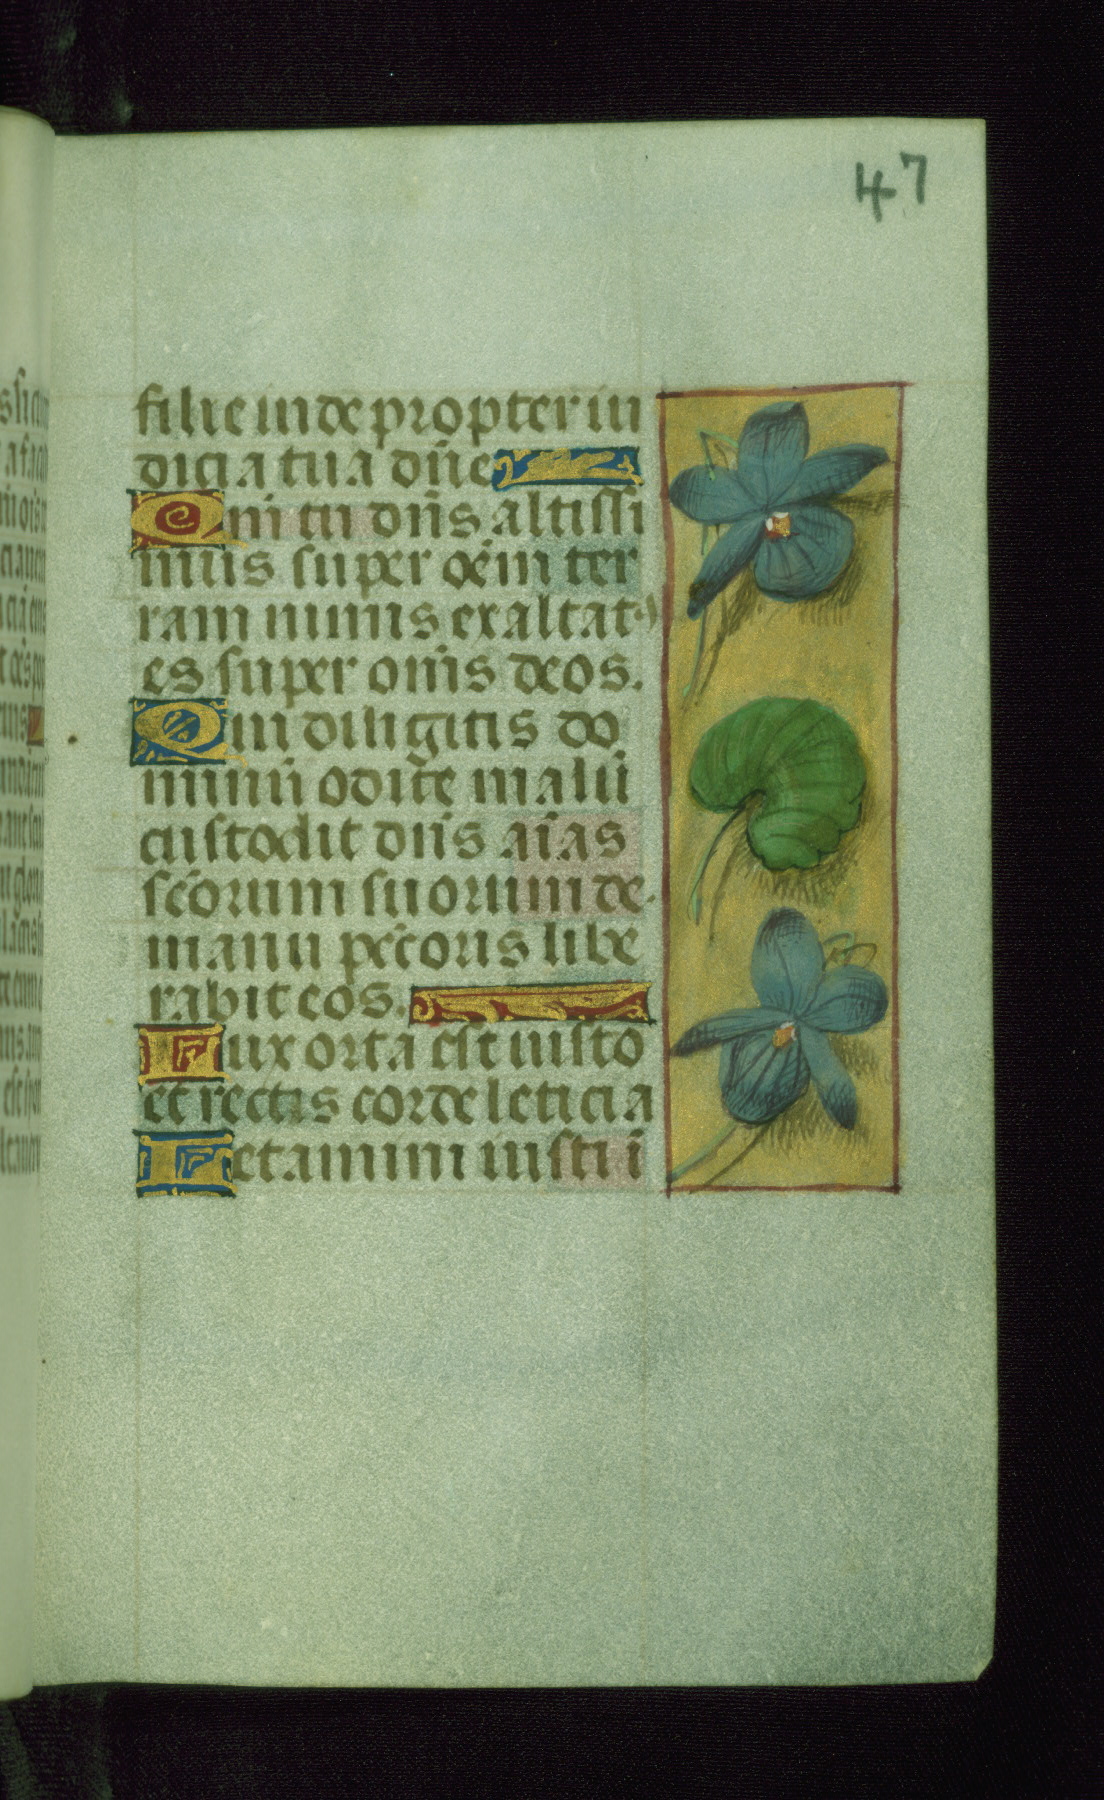 47
filie inde propter iu
dicia tua dñe
Qm̄ tu dñs altissi
mus super oēm ter
ram nimis exaltatꝰ
es super om̄s deos.
Qui diligitis do
minū odite malū
custodit dñs aīas
scōrum suorum de
manu pec̄coris libe
rabit eos.
Lux orta est iusto
et rectis corde leticia
Letamini iusti ī